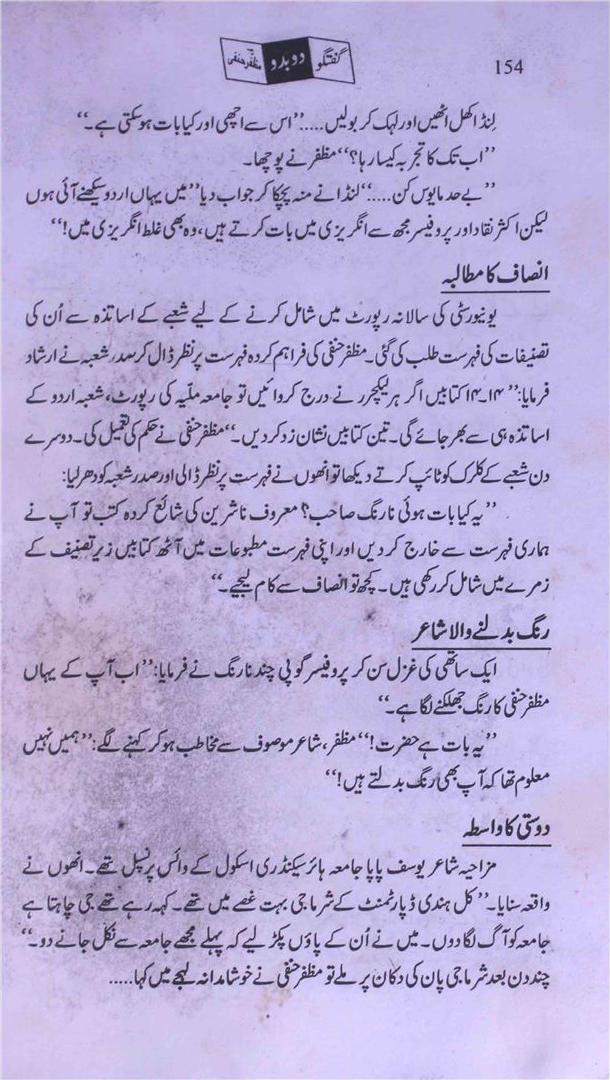 154
گفتگو دو بدو مظفر حنفی
لِنڈا کھل اٹھیں اور لہک کر بولیں....’’اس سے اچھی اور کیا بات ہوسکتی ہے۔‘‘
’’اب تک کا تجربہ کیسا رہا؟‘‘مظفر نے پوچھا۔
’’بے حد مایوس کن....‘‘لنڈا نے منہ پچکا کر جواب دیا’’میں یہاں اردو سیکھنے آئی ہوں
لیکن اکثر نقاد اور پروفیسر مجھ سے انگریزی میں بات کرتے ہیں، وہ بھی غلط انگریزی میں!‘‘
انصاف کا مطالبہ
یونیورسٹی کی سالانہ رپورٹ میں شامل کرنے کے لیے شعبے کے اساتذہ سے اُن کی
تصنیفات کی فہرست طلب کی گئی۔ مظفر حنفی کی فراہم کردہ فہرست پر نظر ڈال کر صدر شعبہ نے ارشاد
فرمایا:’’۱۴۔۱۴ کتابیں اگر ہر لیکچرر نے درج کروائیں تو جامعہ ملّیہ کی رپورٹ، شعبہ اردو کے
اساتذہ ہی سے بھر جائے گی۔ تین کتابیں نشان زد کردیں۔‘‘مظفر حنفی نے حکم کی تعمیل کی۔ دوسرے
دن شعبے کے کلرک کو ٹائپ کرتے دیکھا تو انھوں نے فہرست پر نظر ڈالی اور صدر شعبہ کو دھر لیا:
’’یہ کیا بات ہوئی نارنگ صاحب؟ معروف ناشرین کی شائع کردہ کتب تو آپ نے
ہماری فہرست سے خارج کردیں اور اپنی فہرست مطبوعات میں آٹھ کتابیں زیر تصنیف کے
زمرے میں شامل کر رکھی ہیں۔ کچھ تو انصاف سے کام لیجیے۔‘‘
رنگ بدلنے والا شاعر
ایک ساتھی کی غزل سن کر پروفیسر گوپی چند نارنگ نے فرمایا:’’اب آپ کے یہاں
مظفر حنفی کا رنگ جھلکنے لگا ہے۔‘‘
’’یہ بات ہے حضرت!‘‘مظفر، شاعر موصوف سے مخاطب ہوکر کہنے لگے:’’ہمیں نہیں
معلوم تھا کہ آپ بھی رنگ بدلتے ہیں!‘‘
دوستی کا واسطہ
مزاحیہ شاعر یوسف پاپا جامعہ ہائر سیکنڈری اسکول کے وائس پرنسپل تھے۔ انھوں نے
واقعہ سنایا۔’’کل ہندی ڈپارٹمنٹ کے شرماجی بہت غصے میں تھے۔ کہہ رہے تھے جی چاہتا ہے
جامعہ کو آگ لگا دوں۔ میں نے اُن کے پاؤں پکڑ لیے کہ پہلے مجھے جامعہ سے نکل جانے دو۔‘‘
چند دن بعد شرماجی پان کی دکان پر ملے تو مظفر حنفی نے خوشامدانہ لہجے میں کہا.....